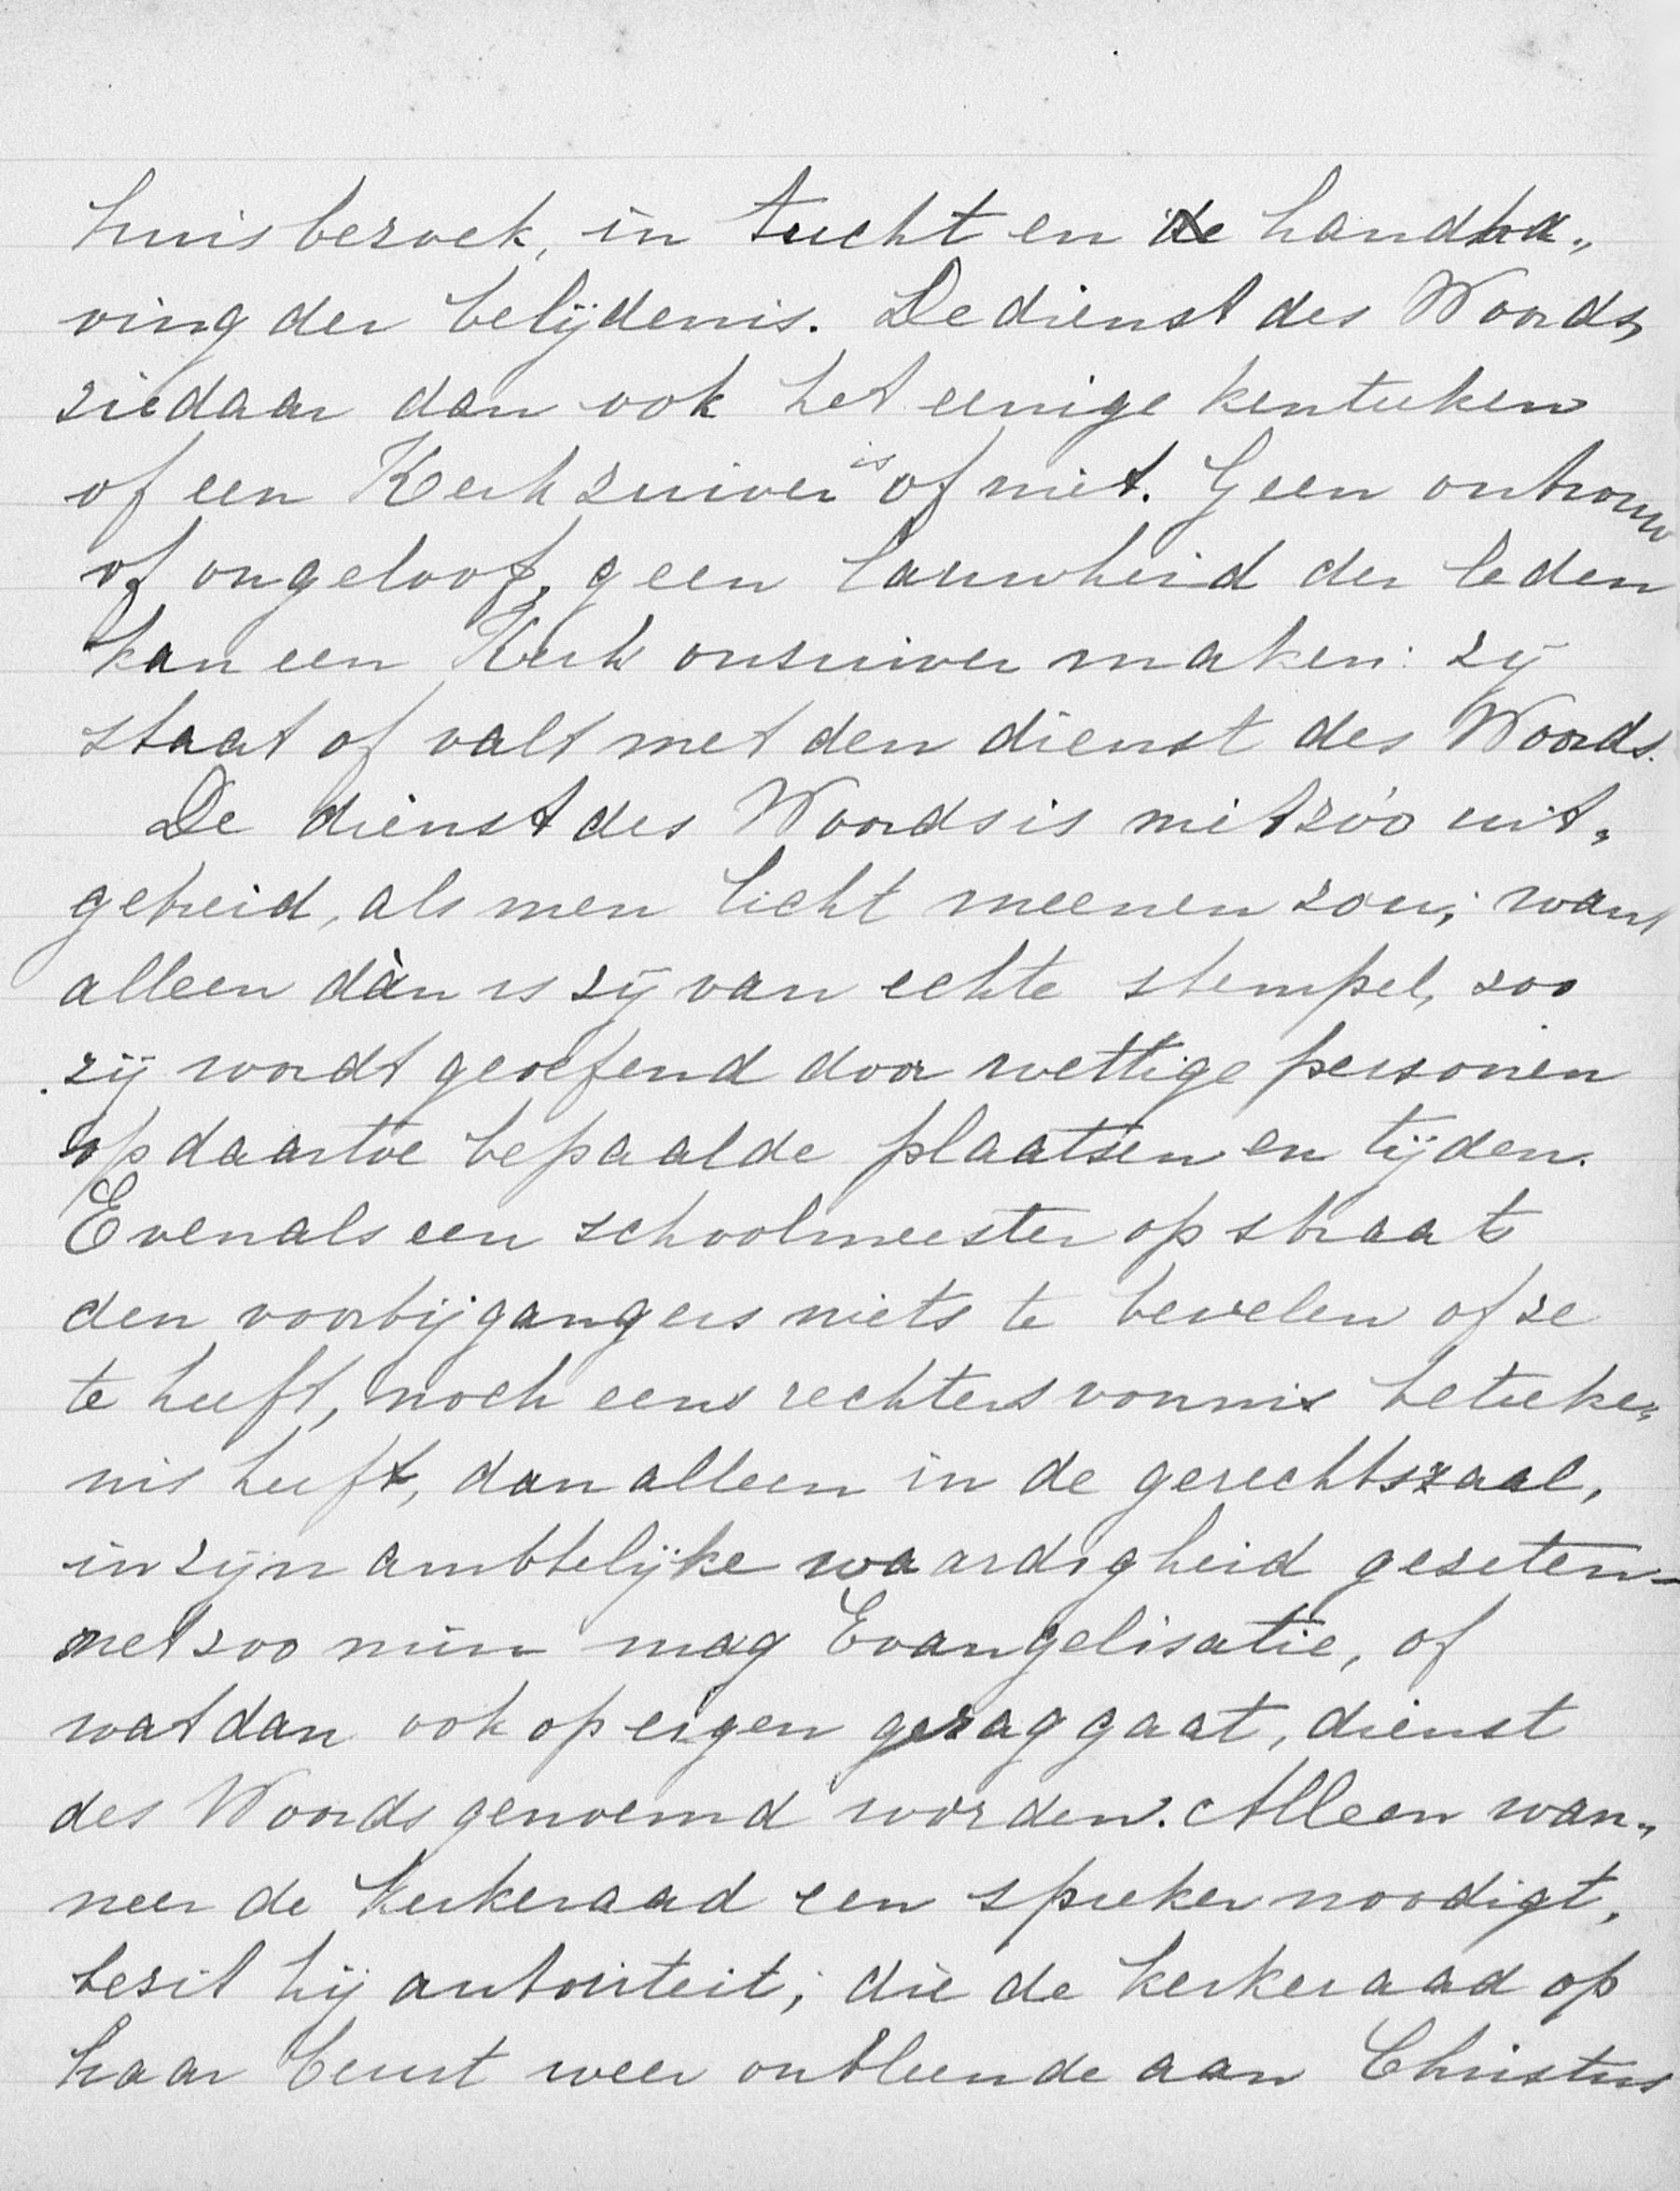 huisbezoek, in tucht en de handha„
ving der belijdenis. De dienst des Woords,
ziedaar dan ook het eenige kenteeken
of een Kerk zuiver is of niet. Geen ontrouw
of ongeloof, geen lauwheid der leden
kan een Kerk onzuiver maken: zij
staat of valt met den dienst des Woords.
De dienst des Woords is niet zóó uit„
gebreid, als men licht meenen zou; want
alleen dàn is zij van echte stempel, zoo
zij wordt geoefend door wettige personen
op daartoe bepaalde plaatsen en tijden.
Evenals een schoolmeester op straat
den voorbijgangers niets te bevelen of ze
te heeft, noch eens rechters vonnis beteeke„
nis heeft, dan alleen in de gerechtszaal,
in zijn ambtelijke waardigheid gezeten—
net zoo min mag Evangelisatie, of
wat dan ook op eigen gezag gaat, dienst
des Woords genoemd worden. Alleen wan„
neer de kerkeraad een spreker noodigt,
bezit hij autoriteit; die de kerkeraad op
haar beurt weer ontleende aan Christus